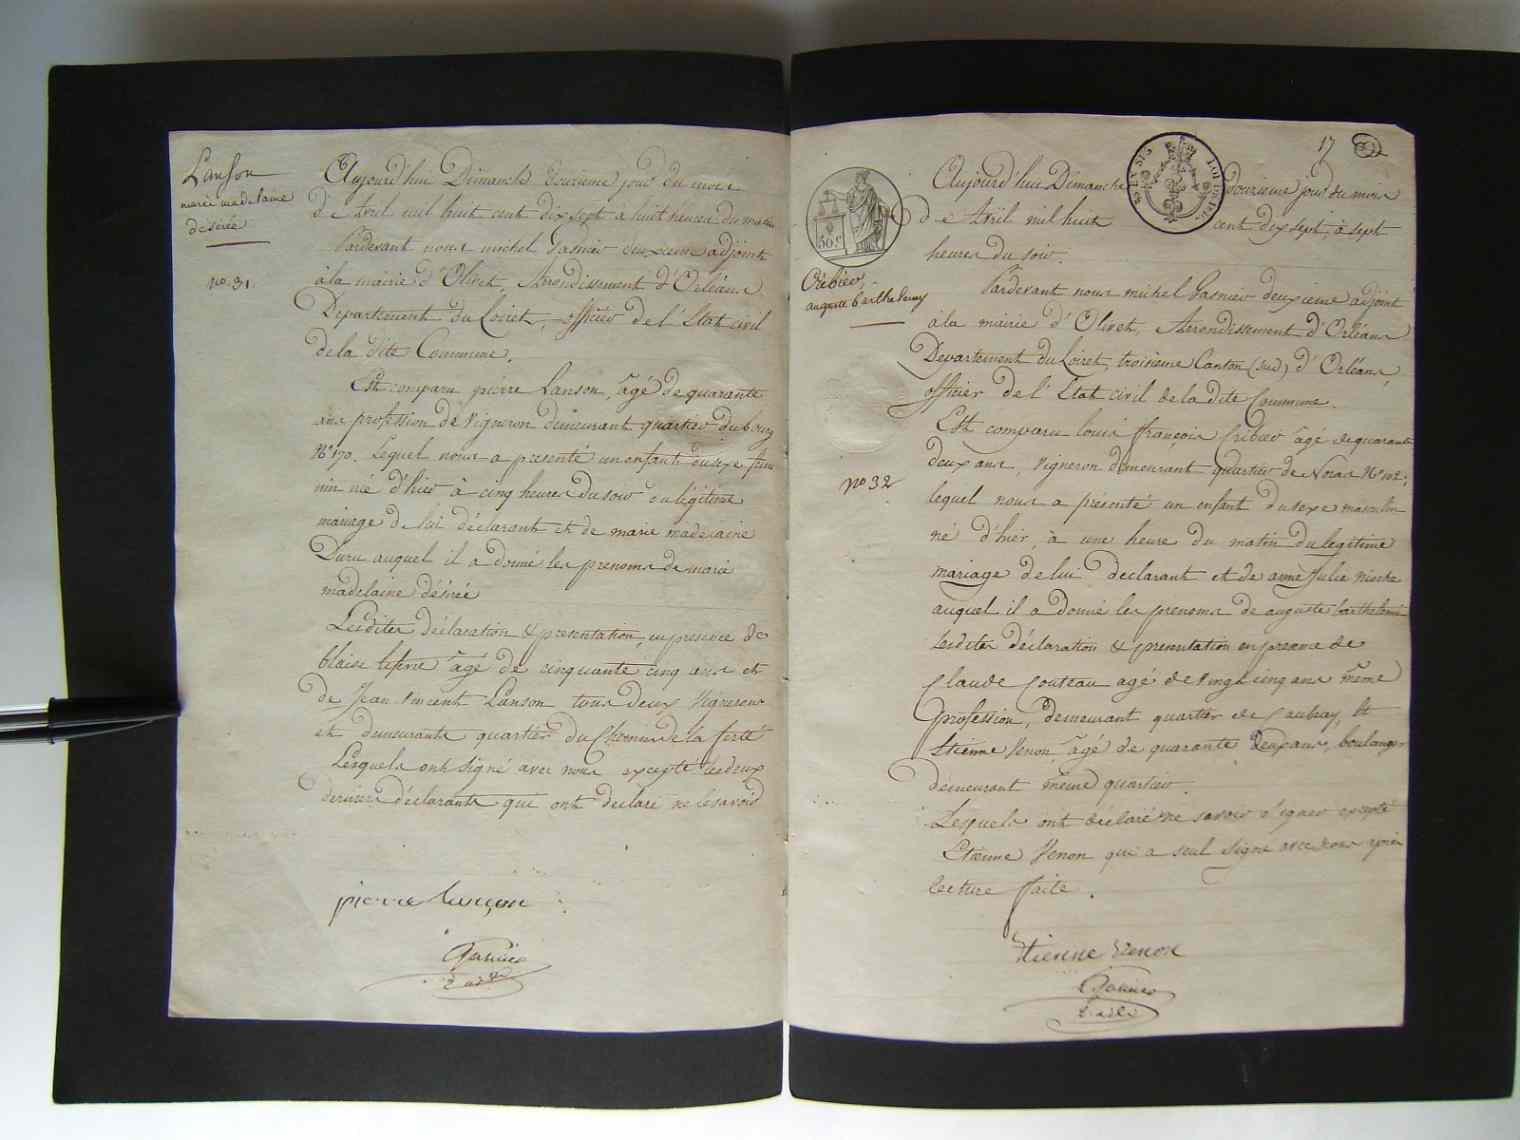 Lanson
marie madelaine
désirée
no. 31.
Aujourd'hui Dimanche treizieme jour du mois
d'Avril mil huit cent dix sept a huit heures du matin
Pardevant nous michel Gasnier deuxieme adjoint
à la mairie d'Olivet, Arrondissement d'Orléans
Departement du Loiret, officier de l'Etat civil
de la dite Commune.
Est comparu pierre Lanson, agé de quarante
ans profession de vigneron demeurant quartier du bourg
No 170. Lequel nous a presenté un enfant du sexe fémi
nin né d'hier à cinq heures du soir en légitime
mariage de lui déclarant et de marie madelaine
Duru auquel il a donné les prenoms de marie
madelaine désirée
Lesdites déclaration & presentation, en presence de
blaise lefevre agé de cinquante cinq ans et
de Jean vincent Lanson tous deux vignerons
et demeurants quartier du Chemin de la ferté
Lesquels ont signé avec nous excepté les deux
derniers déclarants qui ont declaré ne le savoir
pierre lançon
Gasnier
2. adt
17
50 c
Cribier,
auguste barthelemy
no 32
Aujourd'hui Dimanche treizieme jour du mois
de Avril mil huit cent dix sept, à sept
heures du soir.
Pardevant nous michel Gasnier deuxieme adjoint
à la mairie d'Olivet, Arrondissement d'Orléans
Departement du Loiret, troisieme Canton (sud) d'Orléans,
officier de l'Etat civil de la dite Commune.
Est comparu louis françois Cribier agé de quarante
deux ans, vigneron demeurant quartier de No 102;
lequel nous a présenté un enfant du sexe masculin
né d'hier, à une heure du matin du legitime
mariage de lui declarant et de anne Julie
auquel il a donné les prenoms de auguste barthelemi
Lesdites déclaration & presentation en presence de
Claude Couteau agé de vingt cinq ans même
profession, demeurant quartier de Caubray, Et
Etienne Venon, agé de quarante deux ans, boulanger
demeurant même quartier.
Lesquels ont déclaré ne savoir signer excepté
Etienne Venon qui a seul signé avec nous après
lecture faite.
Etienne Venon
Gasnier
2. adt